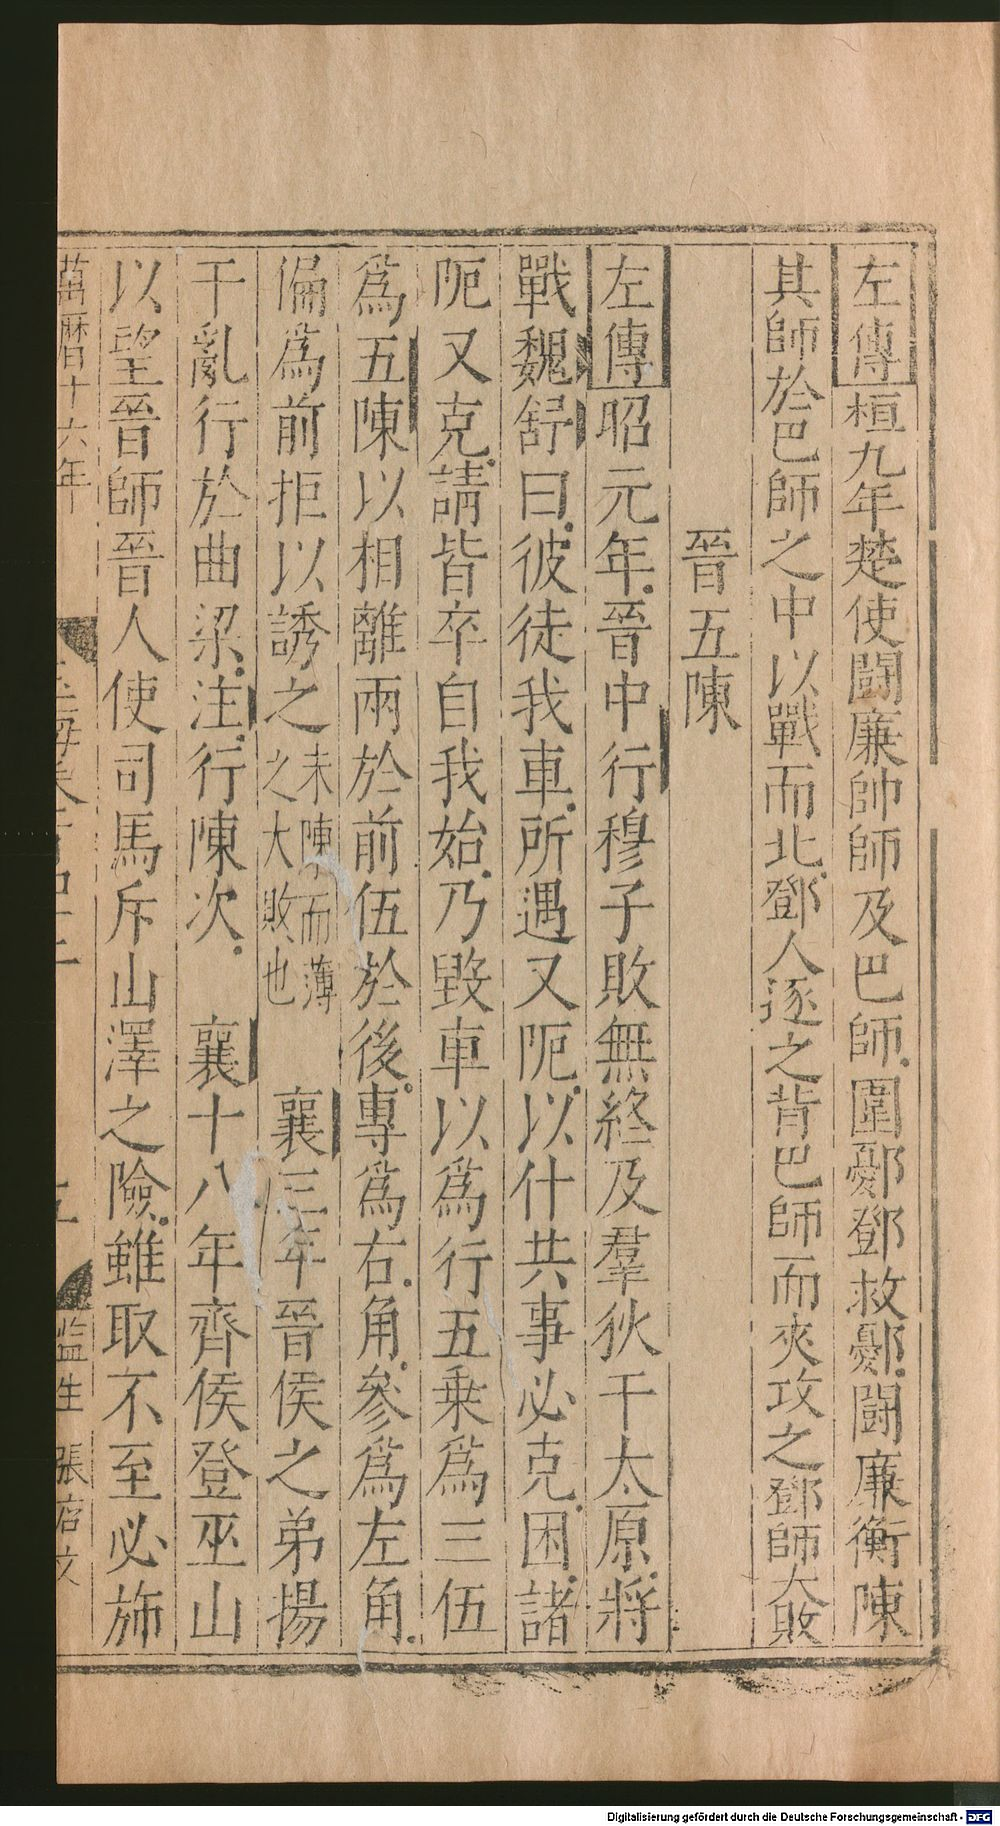 左傳桓九年楚使鬬廉帥師及巴師圍鄾鄧救鄾鬬廉衡陳
其師於巴師之中以戰而北鄧人逐之背巴師而夾攻之鄧師大敗
晉五陳
左傳昭元年晉中行穆子敗無終及羣狄于太原將
戰魏舒曰彼徒我車所遇又阨以什共事必克困諸
阨又克請皆卒自我始乃毀車以爲行五乗爲三伍
爲五陳以相離兩於前伍於後專爲右角參爲左角
偏爲前拒以誘之未陳而薄之大敗也 襄三年晉侯之弟揚
干亂行於曲梁注行陳次 襄十八年齊侯登巫山
以望晉師晉人使司馬斥山澤之險雖取不至必斾
萬曆十六年
五
监生 張啓文
Digitalisierung gefördert durch die Deutsche Forschungsgemeinschaft - DFG